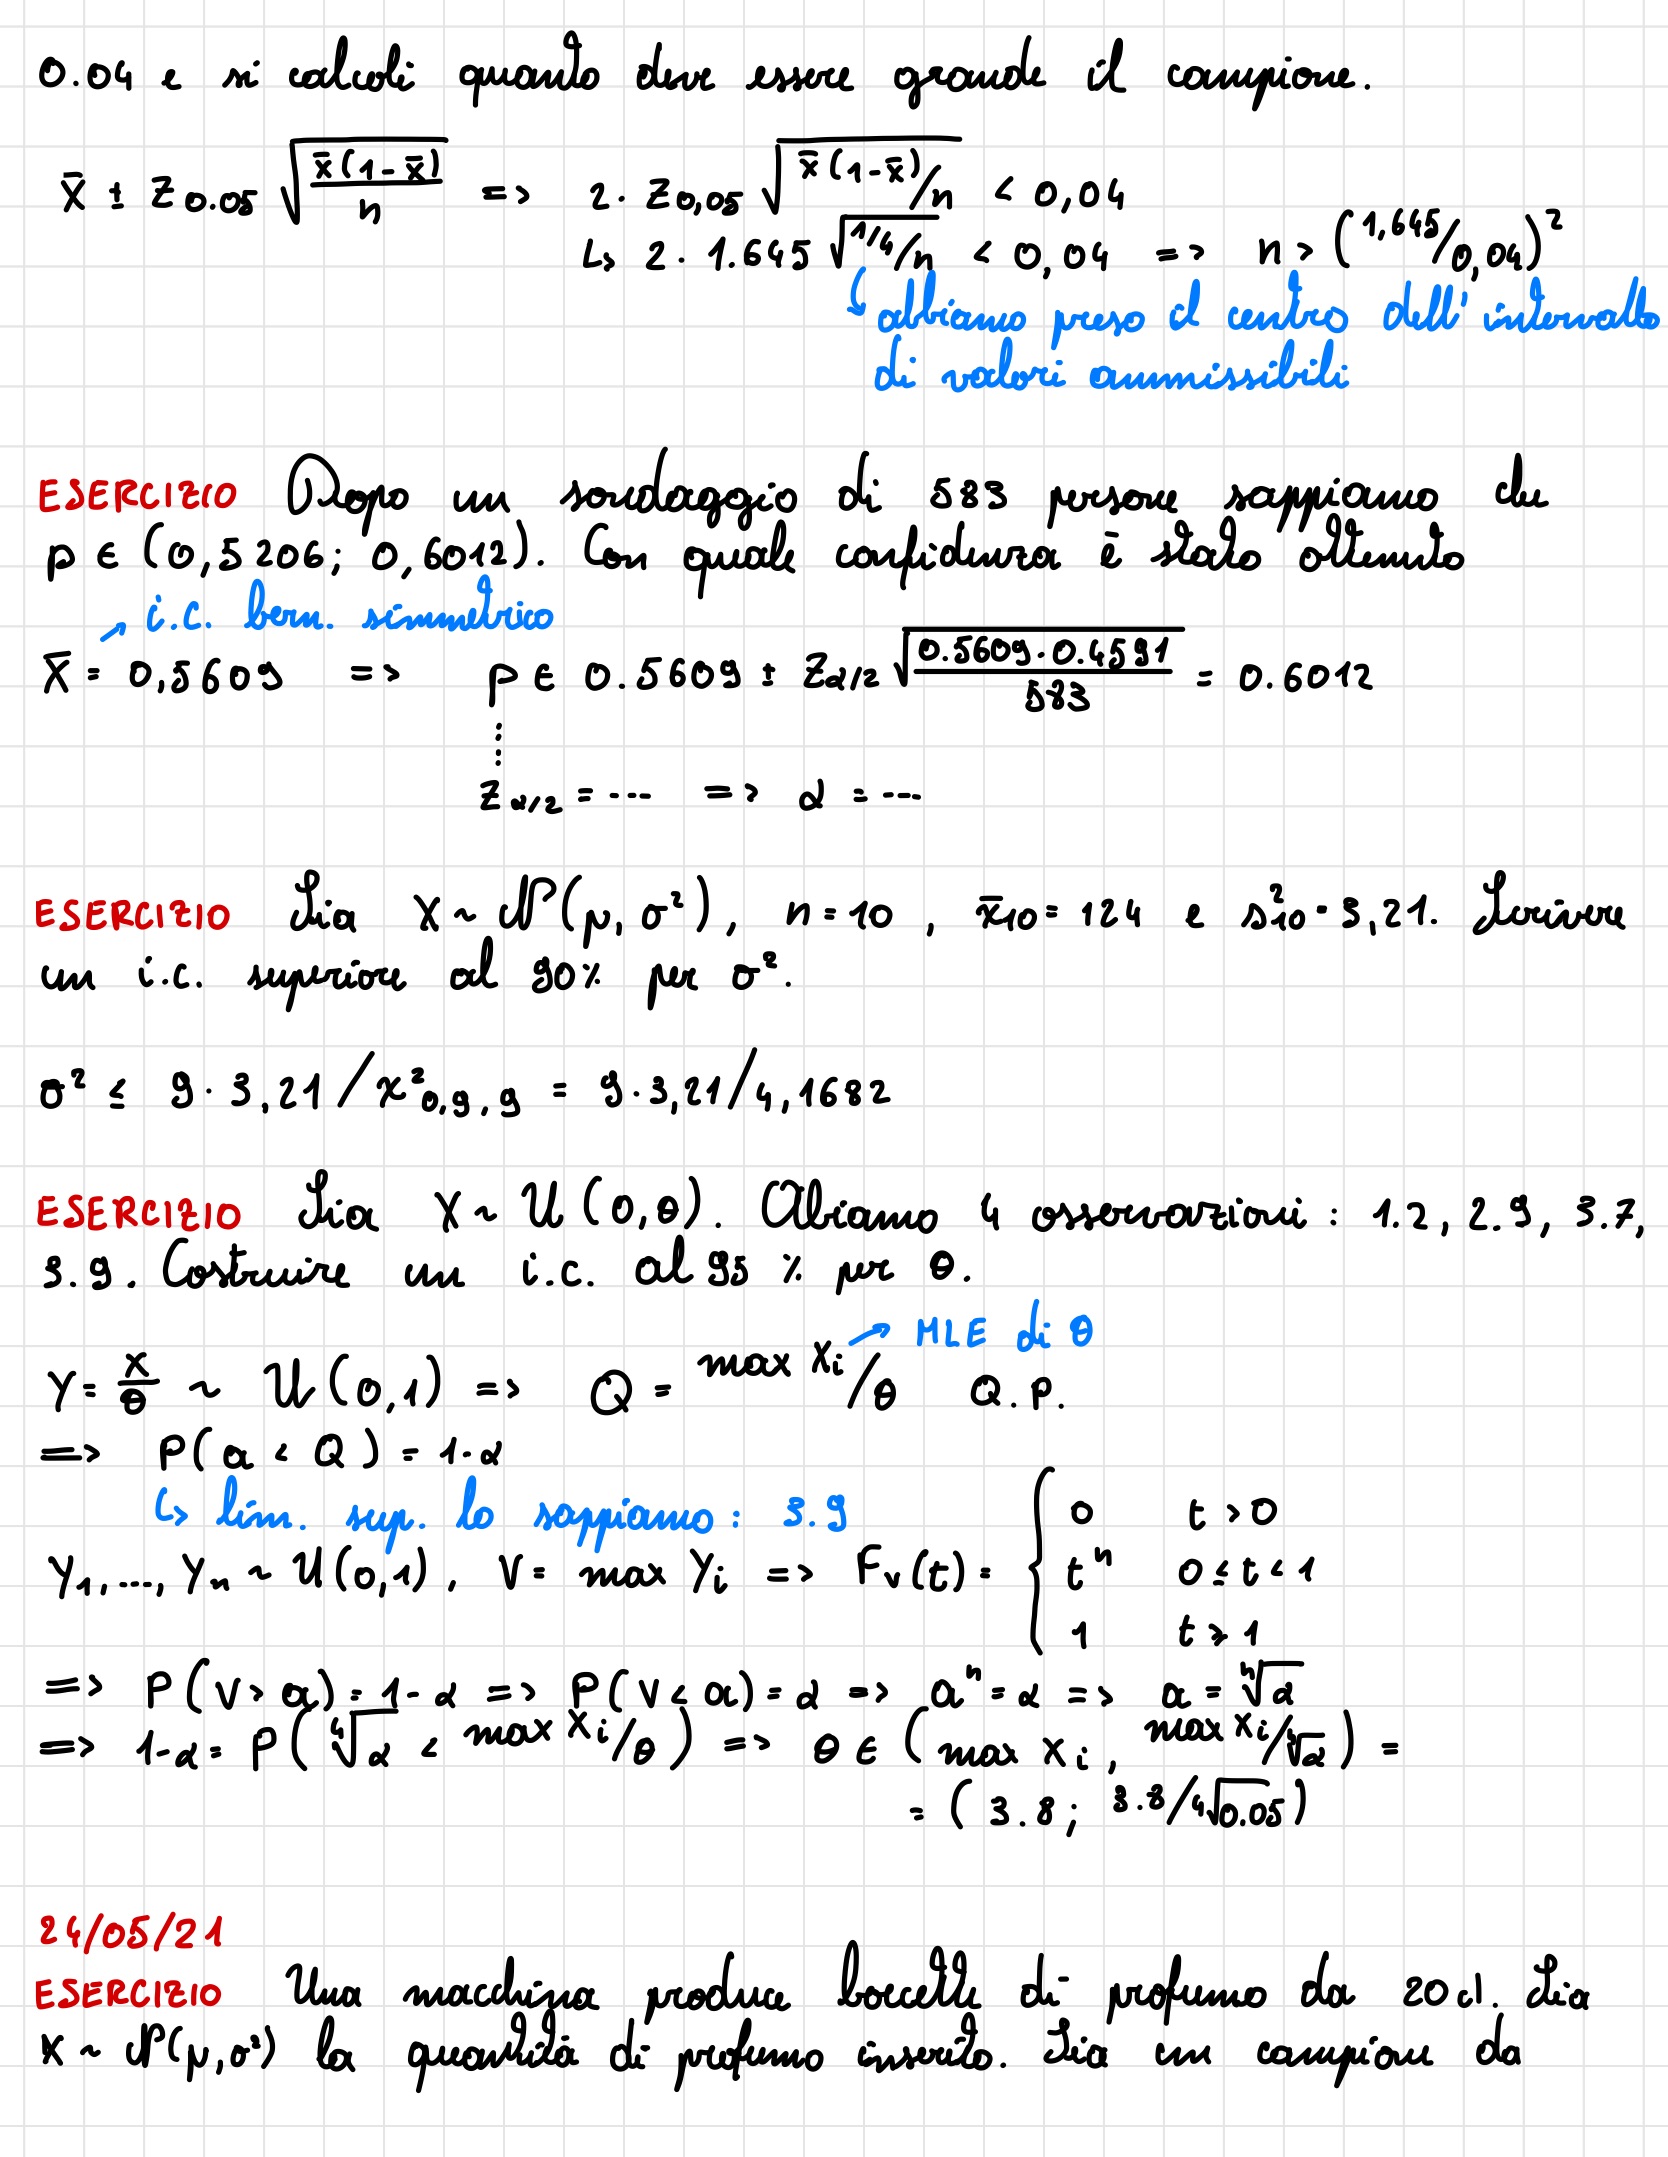 0.04 e si calcoli quanto deve essere grande il campione.
X̄ ± Z0.05 √(x̄(1-x̄)/n) => 2· Z0,05 √(x̄(1-x̄)/n) < 0,04
↳ 2· 1.645 √(1/4/n) < 0,04 => n > (1,645/0,04)²
↳ abbiamo preso il centro dell' intervallo
di valori ammissibili
ESERCIZIO Dopo un sondaggio di 583 persone sappiamo che
p ∈ (0,5206; 0,6012). Con quale confidenza è stato ottenuto
↗ i.c. bern. simmetrico
X̄ = 0,5609 => p ∈ 0.5609 ± Zα/2 √(0.5609·0.4591/583) = 0.6012
⋮
Zα/2 = ... => α = ...
ESERCIZIO Sia X ~ N(μ, σ²), n = 10, x̄10 = 124 e s²10 = 3,21. Scrivere
un i.c. superiore al 90% per σ².
σ² ≤ 9·3,21/χ²0,9,9 = 9·3,21/4,1682
ESERCIZIO Sia X ~ U(0,θ). Abiamo 4 osservazioni: 1.2, 2.9, 3.7,
3.9. Costruire un i.c. al 95 % per θ.
→ MLE di θ
Y = X/θ ~ U(0,1) => Q = max Xi/θ Q.P.
=> P(a < Q) = 1-α
↳ lim. sup. lo sappiamo: 3.9
Y1,..., Yn ~ U(0,1), V = max Yi => Fv(t) = { 0 t > 0
tⁿ 0 ≤ t < 1
1 t ≥ 1
=> P(V > a) = 1-α => P(V < a) = α => aⁿ = α => a = ⁿ√α
=> 1-α = P(⁴√α < max Xi/θ) => θ ∈ (max Xi, max Xi/⁴√α) =
= (3.8; 3.8/⁴√0.05)
24/05/21
ESERCIZIO Una macchina produce boccette di profumo da 20 cl. Sia
X ~ N(μ,σ²) la quantità di profumo inserito. Sia un campione da